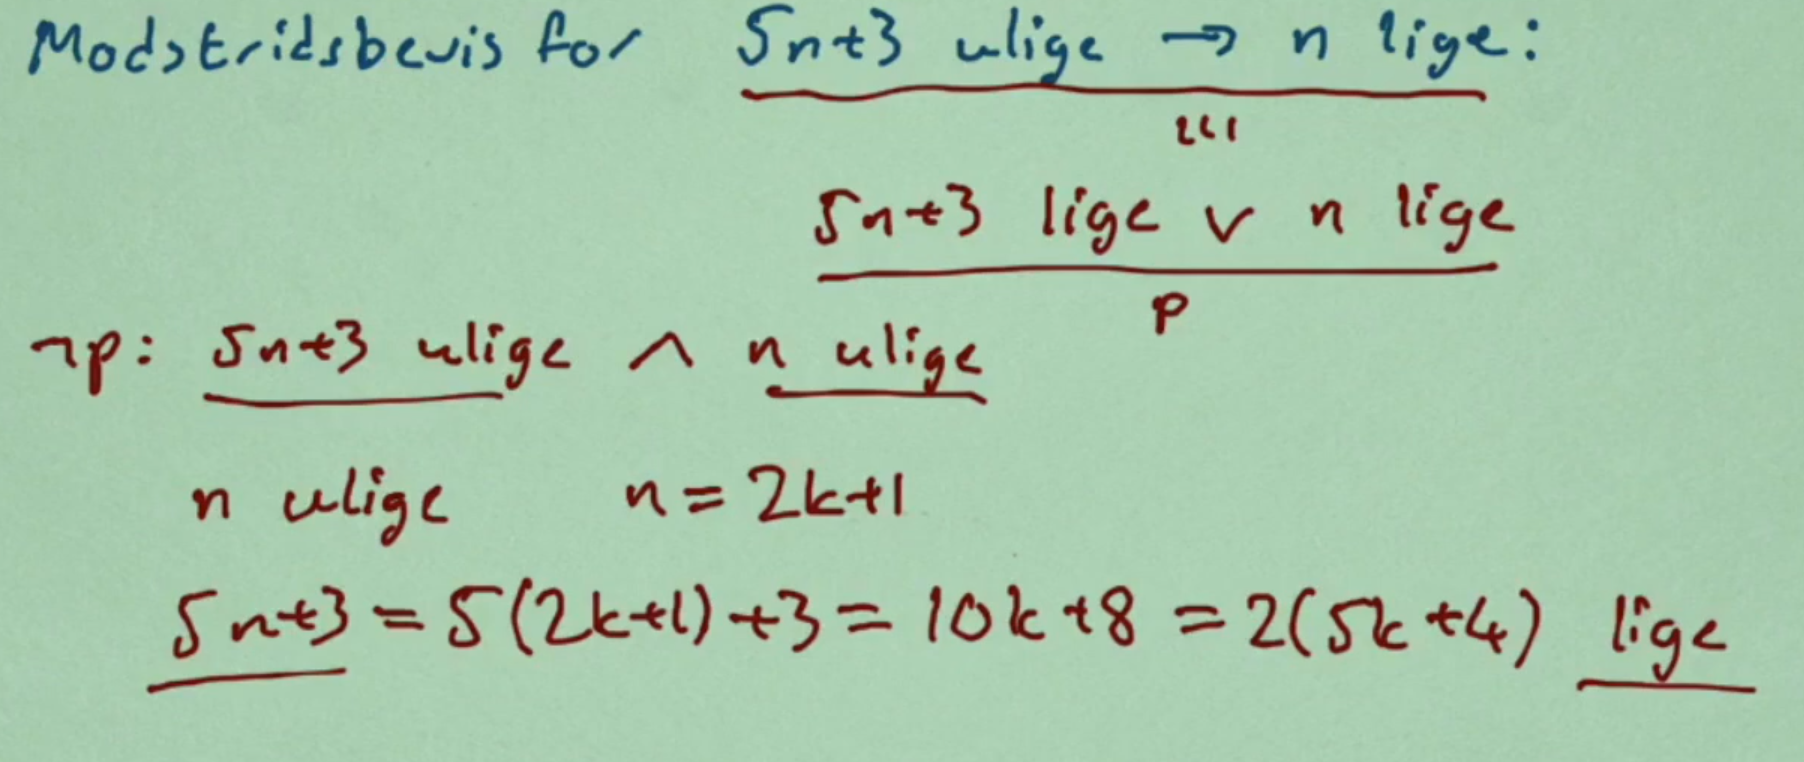 Modstridsbevis for 5n+3 ulige → n lige:
≡
5n+3 lige ∨ n lige
p
¬p: 5n+3 ulige ∧ n ulige
n ulige n = 2k+1
5n+3 = 5(2k+1)+3 = 10k+8 = 2(5k+4) lige